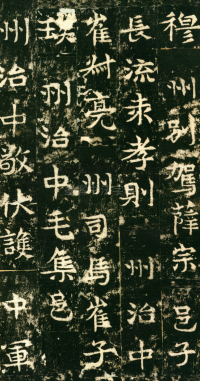 穆 州別駕薛宗 邑子
長流未孝則 州治中
崔尉亮 州司馬崔子
瑛 州治中毛集邑
州治中敬伏護 中軍